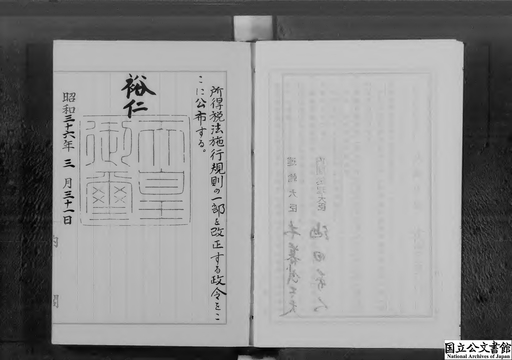 所得税法施行規則の一部を改正する政令をこ
こに公布する。
裕仁
天皇
御璽
昭和三十六年三月三十一日
内閣
国立公文書館
National Archives of Japan